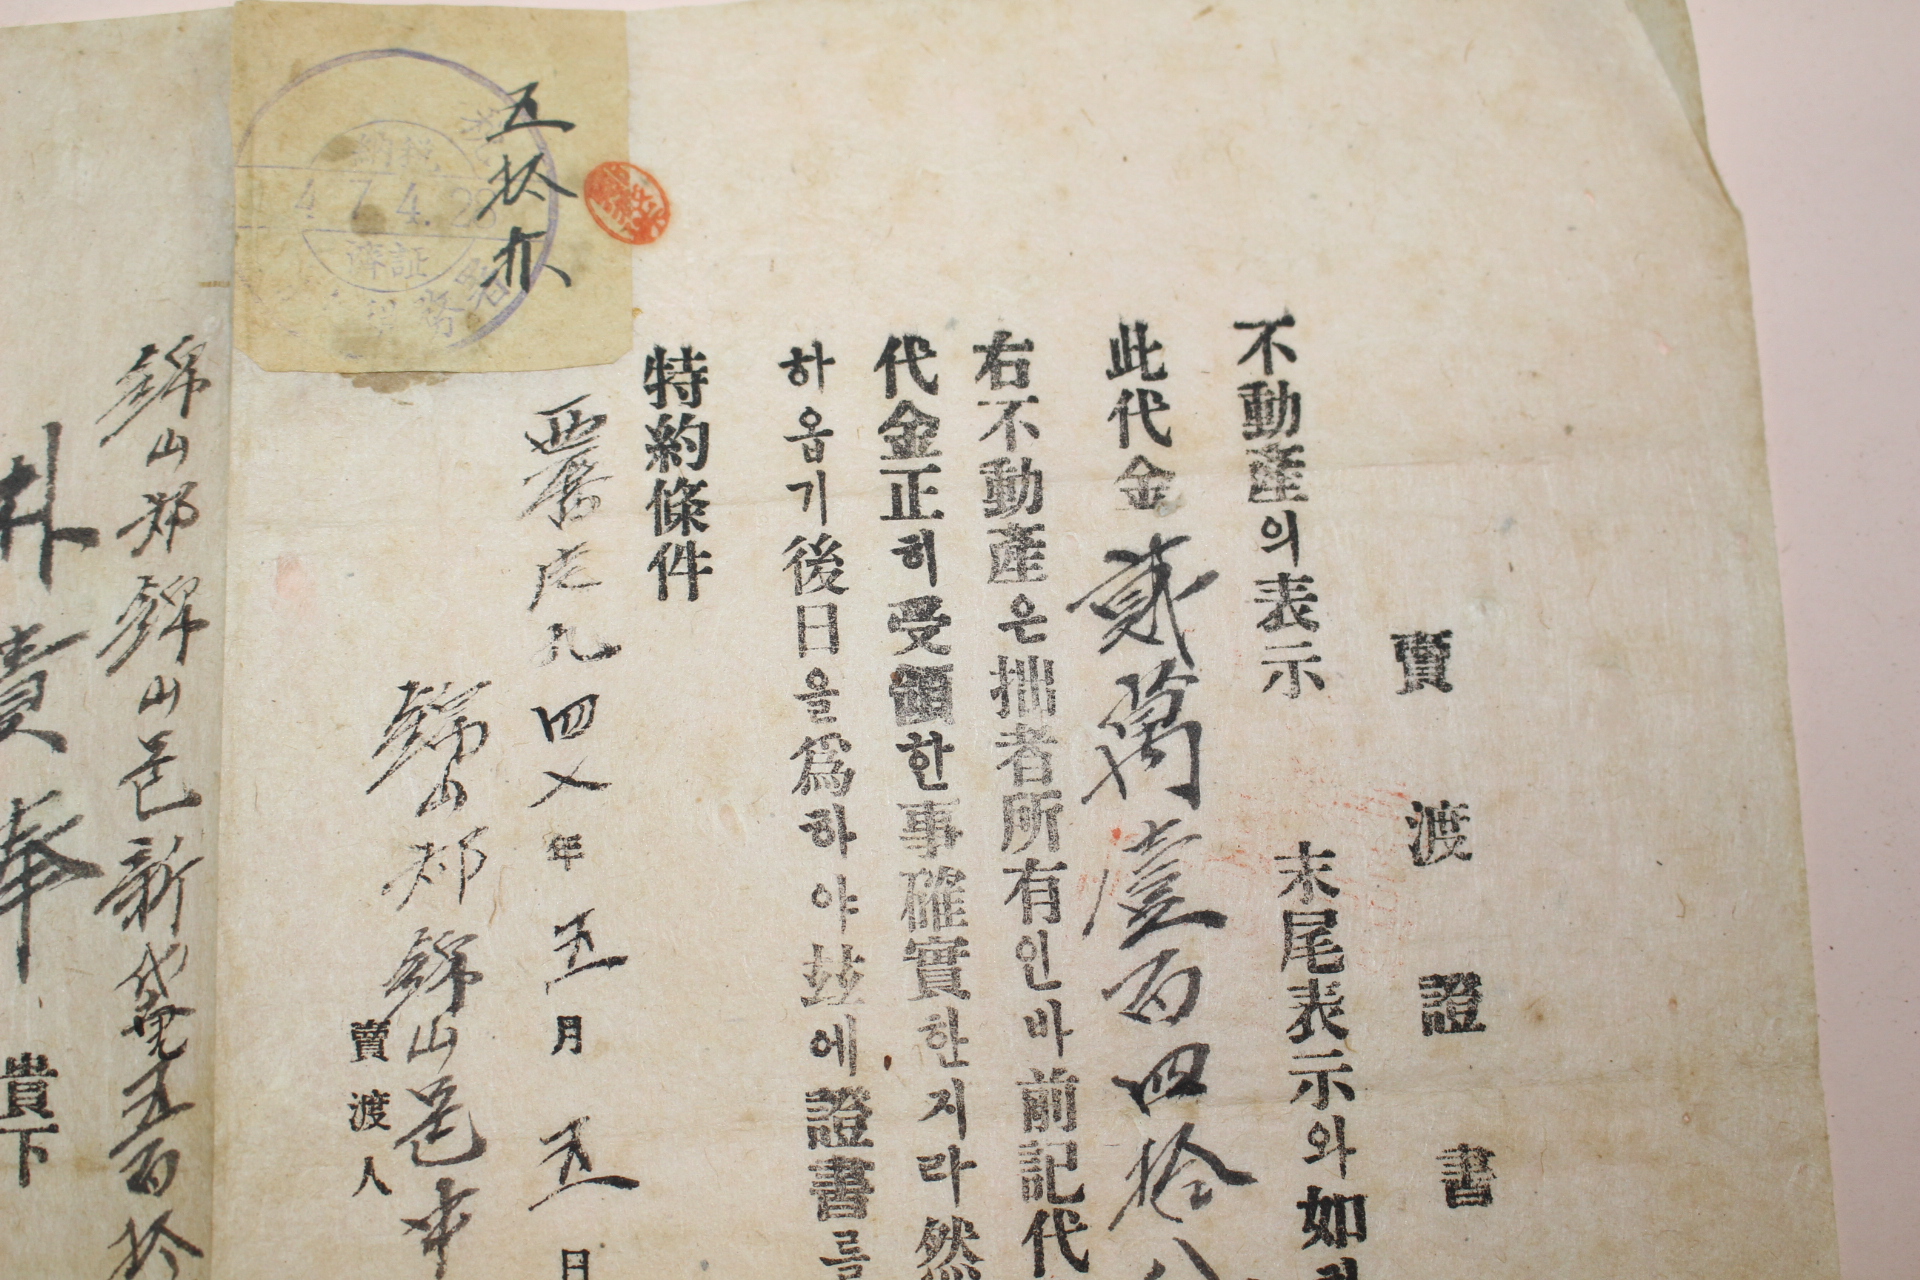 賣渡證書
不動産의表示 末尾表示와如
此代金貳萬壹百四拾八
右不動産은拙者所有인바前記代
代金正히受領한事確實한지라然
하옵기後日을爲하야玆에證書를
特約條件
西曆一九四八年五月五日
錦山郡錦山邑中
賣渡人
錦山郡錦山邑新垈里五百拾
朴賣奉 貴下
五拾
納税
4 7.4.28
濟証
税務署